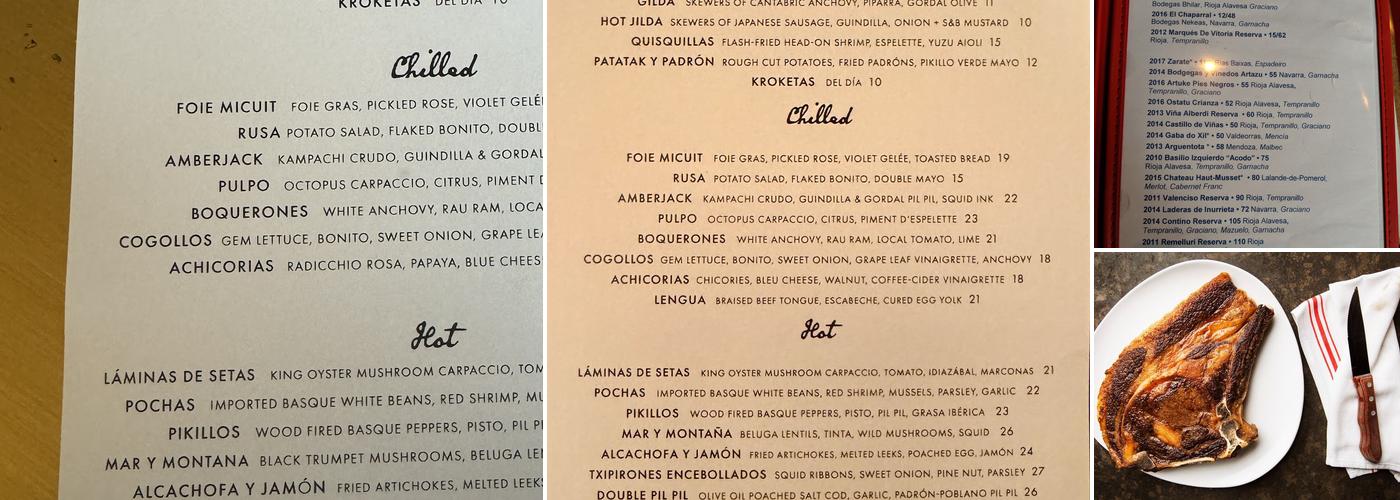 KROKETAS DEL DÍA 10
Chilled
FOIE MICUIT FOIE GRAS, PICKLED ROSE, VIOLET GELÉE
RUSA POTATO SALAD, FLAKED BONITO, DOUBL
AMBERJACK KAMPACHI CRUDO, GUINDILLA & GORDAL
PULPO OCTOPUS CARPACCIO, CITRUS, PIMENT D
BOQUERONES WHITE ANCHOVY, RAU RAM, LOCA
COGOLLOS GEM LETTUCE, BONITO, SWEET ONION, GRAPE LEA
ACHICORIAS RADICCHIO ROSA, PAPAYA, BLUE CHEES
Hot
LÁMINAS DE SETAS KING OYSTER MUSHROOM CARPACCIO, TOM
POCHAS IMPORTED BASQUE WHITE BEANS, RED SHRIMP, MU
PIKILLOS WOOD FIRED BASQUE PEPPERS, PISTO, PIL PI
MAR Y MONTANA BLACK TRUMPET MUSHROOMS, BELUGA LEN
ALCACHOFA Y JAMÓN FRIED ARTICHOKES, MELTED LEEKS
GILDA SKEWERS OF CANTABRIC ANCHOVY, PIPARRA, GORDAL OLIVE 11
HOT JILDA SKEWERS OF JAPANESE SAUSAGE, GUINDILLA, ONION + S&B MUSTARD 10
QUISQUILLAS FLASH-FRIED HEAD-ON SHRIMP, ESPELETTE, YUZU AIOLI 15
PATATAK Y PADRÓN ROUGH CUT POTATOES, FRIED PADRÓNS, PIKILLO VERDE MAYO 12
KROKETAS DEL DÍA 10
Chilled
FOIE MICUIT FOIE GRAS, PICKLED ROSE, VIOLET GELÉE, TOASTED BREAD 19
RUSA POTATO SALAD, FLAKED BONITO, DOUBLE MAYO 15
AMBERJACK KAMPACHI CRUDO, GUINDILLA & GORDAL PIL PIL, SQUID INK 22
PULPO OCTOPUS CARPACCIO, CITRUS, PIMENT D'ESPELETTE 23
BOQUERONES WHITE ANCHOVY, RAU RAM, LOCAL TOMATO, LIME 21
COGOLLOS GEM LETTUCE, BONITO, SWEET ONION, GRAPE LEAF VINAIGRETTE, ANCHOVY 18
ACHICORIAS CHICORIES, BLEU CHEESE, WALNUT, COFFEE-CIDER VINAIGRETTE 18
LENGUA BRAISED BEEF TONGUE, ESCABECHE, CURED EGG YOLK 21
Hot
LÁMINAS DE SETAS KING OYSTER MUSHROOM CARPACCIO, TOMATO, IDIAZÁBAL, MARCONAS 21
POCHAS IMPORTED BASQUE WHITE BEANS, RED SHRIMP, MUSSELS, PARSLEY, GARLIC 22
PIKILLOS WOOD FIRED BASQUE PEPPERS, PISTO, PIL PIL, GRASA IBÉRICA 23
MAR Y MONTAÑA BELUGA LENTILS, TINTA, WILD MUSHROOMS, SQUID 26
ALCACHOFA Y JAMÓN FRIED ARTICHOKES, MELTED LEEKS, POACHED EGG, JAMÓN 24
TXIPIRONES ENCEBOLLADOS SQUID RIBBONS, SWEET ONION, PINE NUT, PARSLEY 27
DOUBLE PIL PIL OLIVE OIL POACHED SALT COD, GARLIC, PADRÓN-POBLANO PIL PIL 26
Bodegas Bhilar, Rioja Alavesa Graciano
2016 El Chaparral • 12/48
Bodegas Nekeas, Navarra, Garnacha
2012 Marqués De Vitoria Reserva • 15/62
Rioja, Tempranillo
2017 Zarate* • Rias Baixas, Espadeiro
2014 Bodgegas y Vinedos Artazu • 55 Navarra, Garnacha
2016 Artuke Pies Negros • 55 Rioja Alavesa,
Tempranillo, Graciano
2016 Ostatu Crianza • 52 Rioja Alavesa, Tempranillo
2013 Viña Alberdi Reserva • 60 Rioja, Tempranillo
2014 Castillo de Viñas • 50 Rioja, Tempranillo, Graciano
2014 Gaba do Xil* • 50 Valdeorras, Mencia
2013 Arguentota * • 58 Mendoza, Malbec
2010 Basilio Izquierdo "Acodo" • 75
Rioja Alavesa, Tempranillo, Garnacha
2015 Chateau Haut-Musset* • 80 Lalande-de-Pomerol,
Merlot, Cabernet Franc
2011 Valenciso Reserva • 90 Rioja, Tempranillo
2014 Laderas de Inurrieta • 72 Navarra, Graciano
2014 Contino Reserva • 105 Rioja Alavesa,
Tempranillo, Graciano, Mazuelo, Garnacha
2011 Remelluri Reserva • 110 Rioja